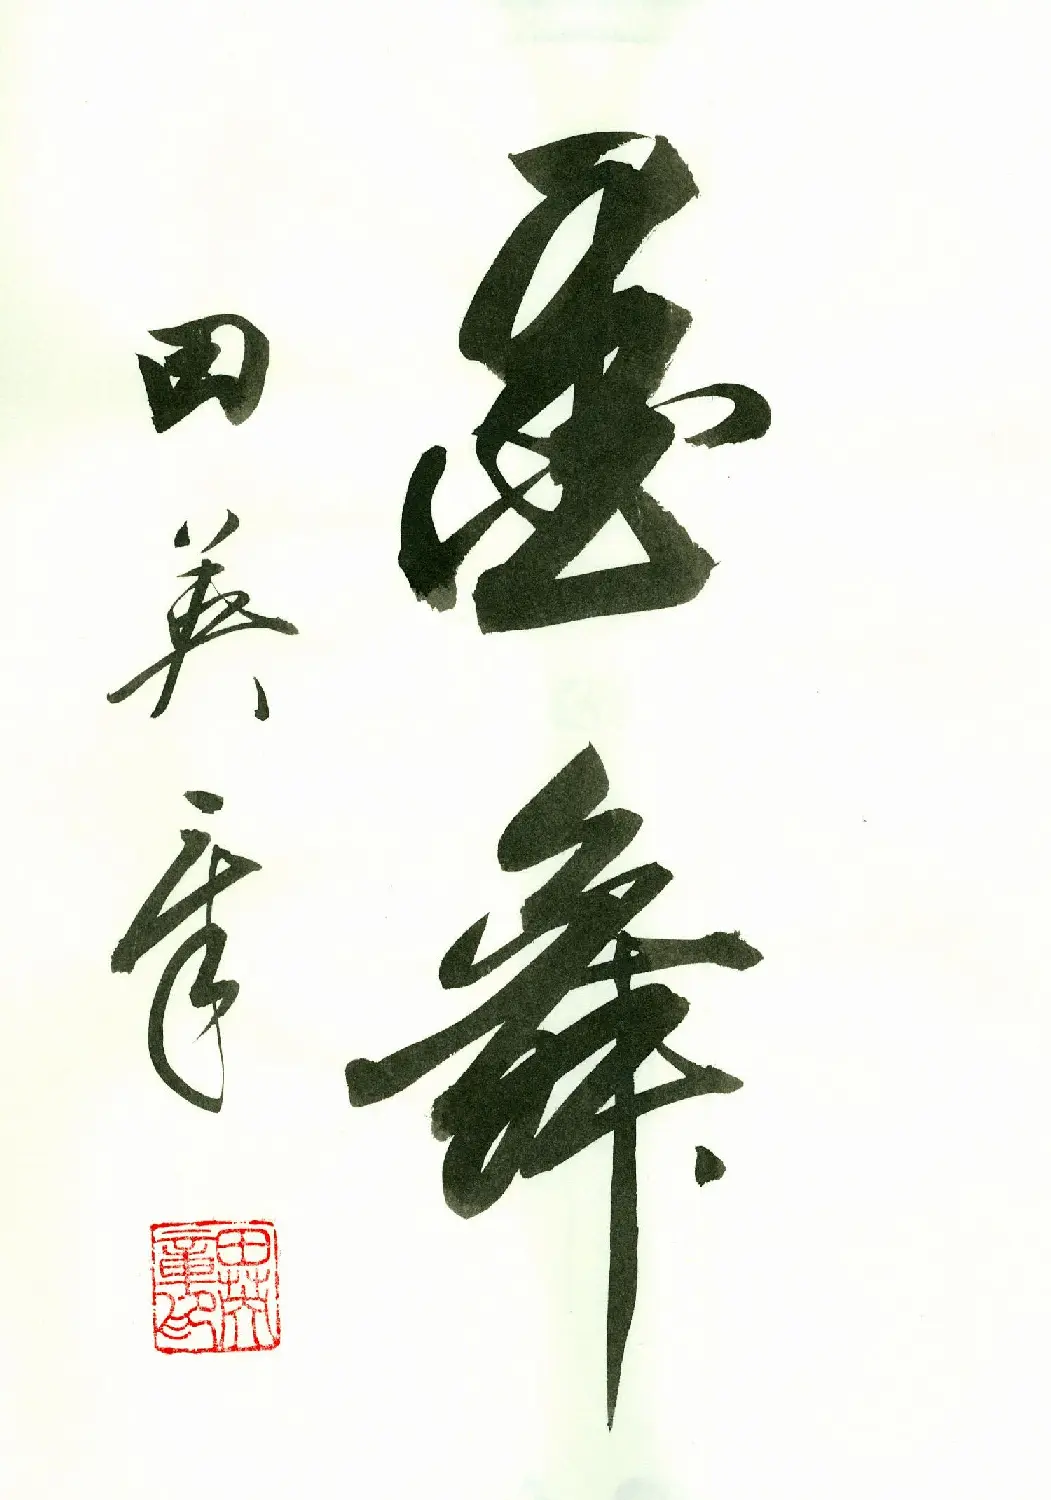 墨舞
田英章
田英章印